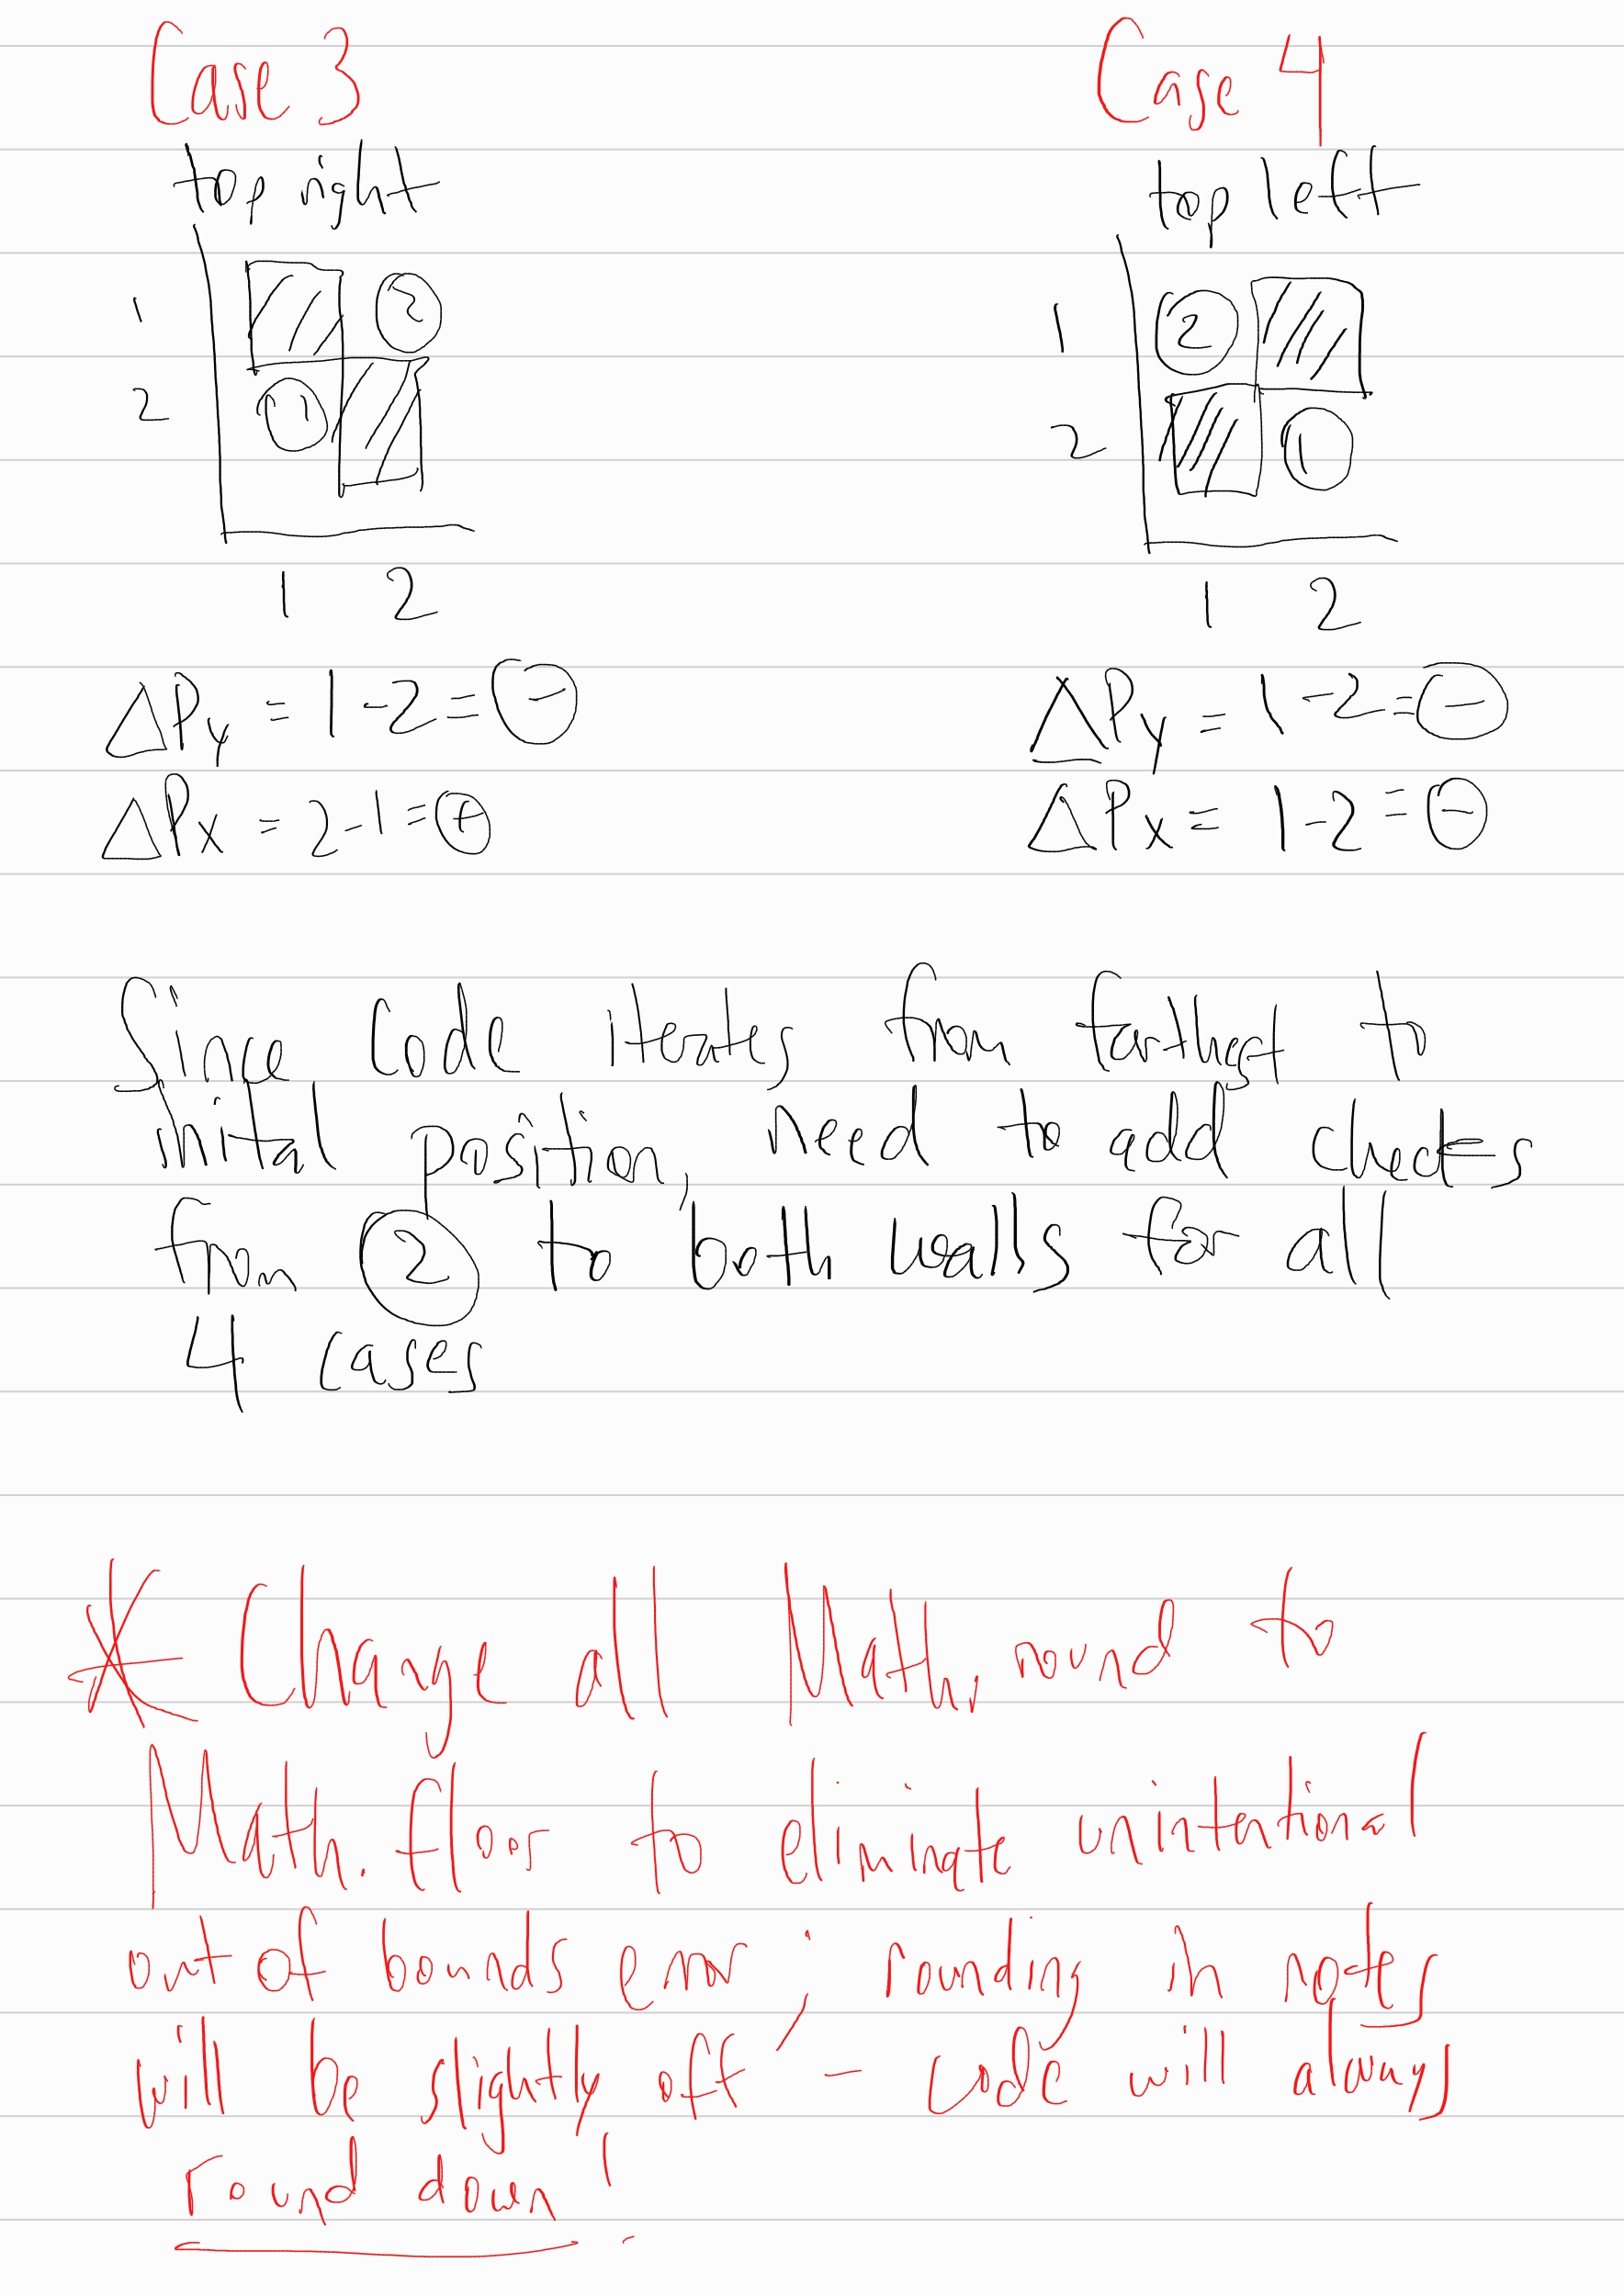 Case 3
top right
1
2
2
1
1 2
ΔPy = 1-2 = ⊖
ΔPx = 2-1 = ⊕
Case 4
top left
1
2
2
1
1 2
ΔPy = 1-2 = ⊖
ΔPx = 1-2 = ⊖
Since Code iterates from farthest to
inital position, need to add checks
from ② to both walls for all
4 cases
* Change all Math.round to
Math.floor to eliminate unintentional
out of bounds error; rounding in notes
will be slightly off - code will always
round down!